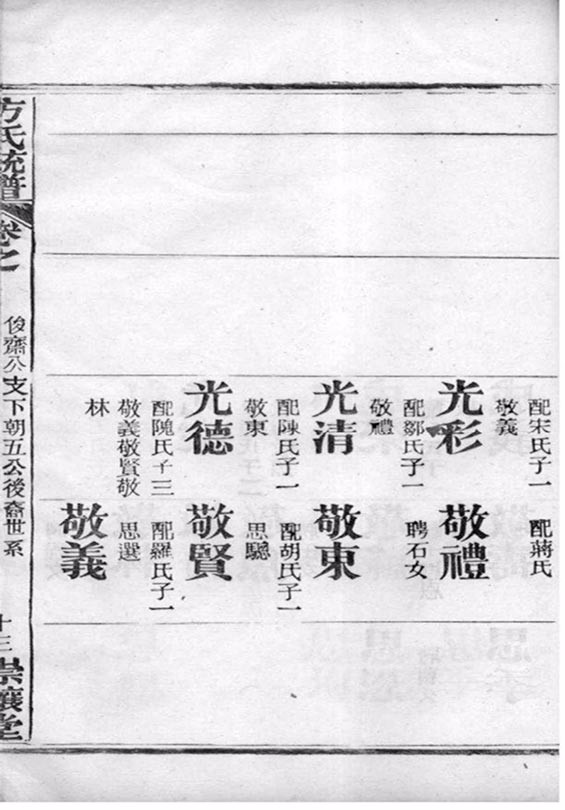 配宋氏子一
敬義
光彩
配鄒氏子一
敬禮
光清
配陳氏子一
敬東
光德
配陳氏子三
敬義敬賢敬
林
配蔣氏
敬禮
聘石女
敬東
配胡氏子一
思驄
敬賢
配羅氏子一
思選
敬義
方氏統譜
卷之
俊齋公支下朝五公後裔世系
十三
崇讓堂